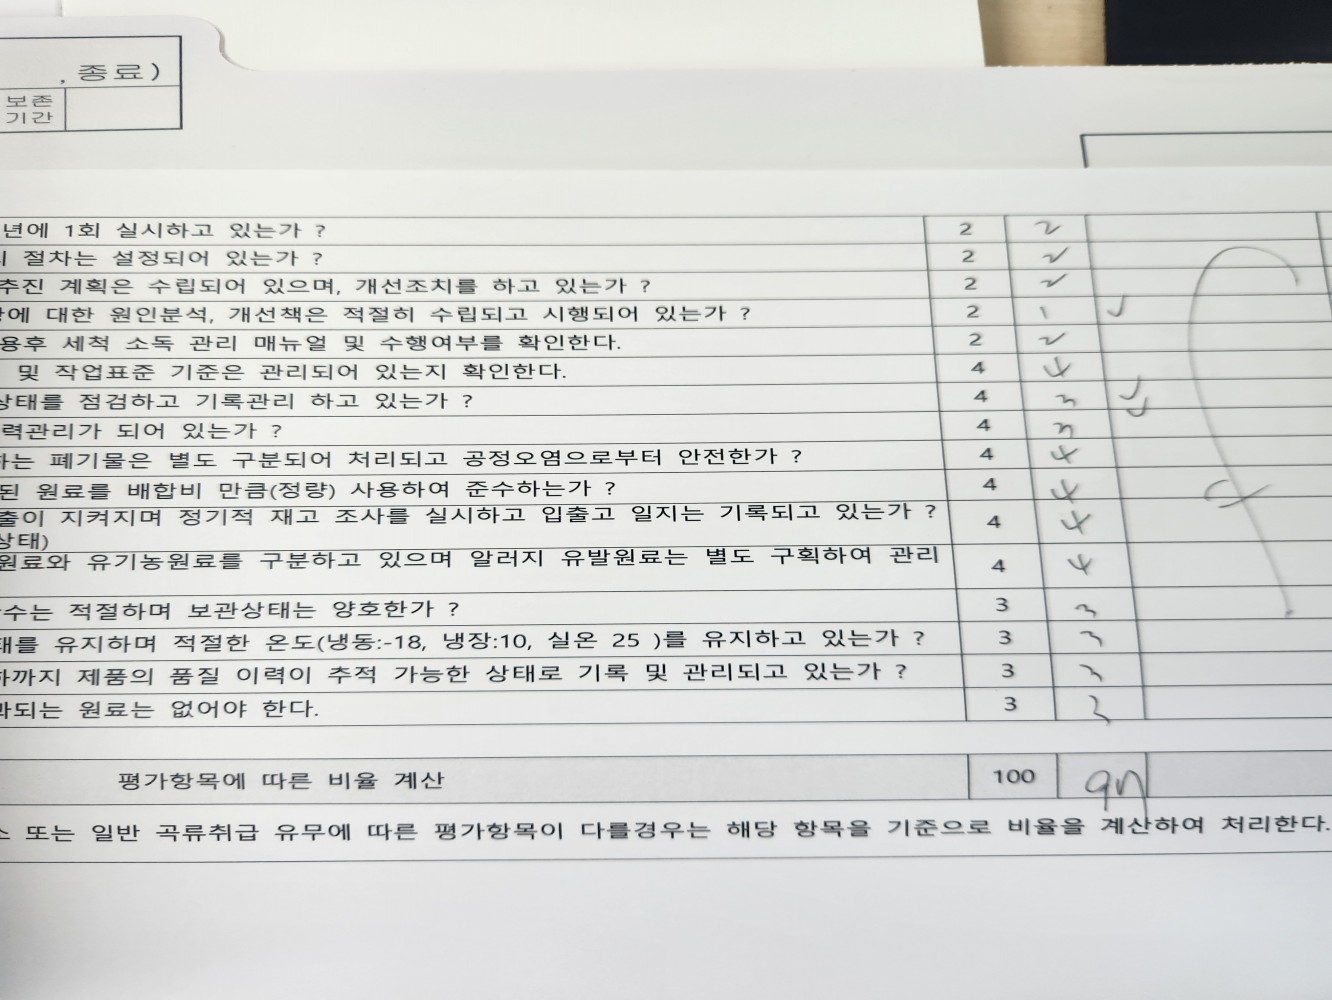 , 종료)
보존
기간
년에 1회 실시하고 있는가 ? 2 2
절차는 설정되어 있는가 ? 2 2
추진 계획은 수립되어 있으며, 개선조치를 하고 있는가 ? 2 2
에 대한 원인분석, 개선책은 적절히 수립되고 시행되어 있는가 ? 2 1
용후 세척 소독 관리 매뉴얼 및 수행여부를 확인한다. 2 2
및 작업표준 기준은 관리되어 있는지 확인한다. 4 4
상태를 점검하고 기록관리 하고 있는가 ? 4 3
력관리가 되어 있는가 ? 4 3
하는 폐기물은 별도 구분되어 처리되고 공정오염으로부터 안전한가 ? 4 4
된 원료를 배합비 만큼(정량) 사용하여 준수하는가 ? 4 4
출이 지켜지며 정기적 재고 조사를 실시하고 입출고 일지는 기록되고 있는가 ? 4 4
상태)
원료와 유기농원료를 구분하고 있으며 알러지 유발원료는 별도 구획하여 관리 4 4
수는 적절하며 보관상태는 양호한가 ? 3 3
태를 유지하며 적절한 온도(냉동:-18, 냉장:10, 실온 25 )를 유지하고 있는가 ? 3 3
까지 제품의 품질 이력이 추적 가능한 상태로 기록 및 관리되고 있는가 ? 3 3
과되는 원료는 없어야 한다. 3 3
평가항목에 따른 비율 계산 100 97
또는 일반 곡류취급 유무에 따른 평가항목이 다를경우는 해당 항목을 기준으로 비율을 계산하여 처리한다.